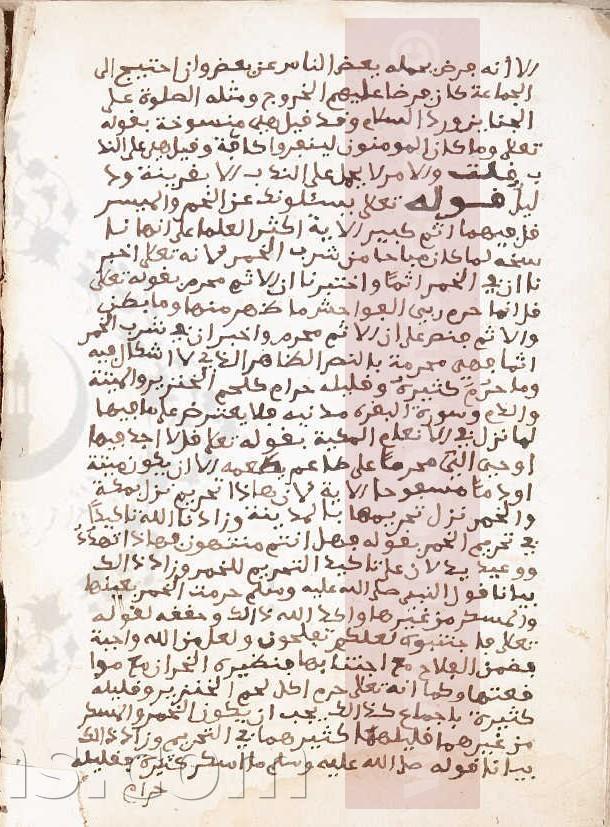 الا أنه فرض يحمله بعض الناس عن بعض وان احتيج الى
الجماعة كان فرضا عليهم الخروج ومثله الصلوة على
الجنايز ورد السلام وقد قيل هي منسوخة بقوله
تعلى وما كان المومنون لينفروا كافة وقيل هي على الند
ب قلت والامر لا يحمل على الندب الا بقرينة ود
ليل قوله تعلى يسئلونك عن الخمر والميسر
قل فيهما اثم كبير الاية اكثر العلما على انها نا
سخة لما كان مباحا من شرب الخمر لانه تعلى اخبر
نا ان في الخمر اثما واخبرنا ان الاثم محرم بقوله تعلى
قل انما حرم ربي الفواحش ما ظهر منها وما بطن
والاثم فنص على ان الاثم محرم واخبر ان في شرب الخمر
اثما فهي محرمة بالنص الظاهر الذي لا اشكال فيه
وما حرم كثيره فقليله حرام كلحم الخنزير والميتة
والدم وسورة البقرة مدنية فلا يعترض على ما فيها
لما نزل في الانعام المكية بقوله تعلى قل لا اجد فيما
اوحي الي محرما على طاعم يطعمه الا ان يكون ميتة
او دما مسفوحا الاية لان هاذا تحريم نزل بمكة
والخمر نزل تحريمها بالمدينة وزادنا الله تاكيدا
في تحريم الخمر بقوله فهل انتم منتهون فهاذا تهدد
ووعيد يدلان على تاكيد التحريم للخمر وزاد ذالك
بيانا قول النبي صلى الله عليه وسلم حرمت الخمر بعينها
والمسكر من غيرها واكد الله ذالك وحققه بقوله
تعلى فاجتنبوه لعلكم تفلحون ولعل من الله واجبة
فضمن الفلاح مع اجتنابها فنظيره الخسران مع موا
قعتها وكما انه تعلى حرم اكل لحم الخنزير وقليله
كثيره باجماع كذالك يجب ان يكون الخمر والمسكر
من غيرهما قليلهما كثيرهما في التحريم وزاد ذالك
بيانا قوله صلى الله عليه وسلم ما اسكر كثيره فقليله
حرام
ns.com